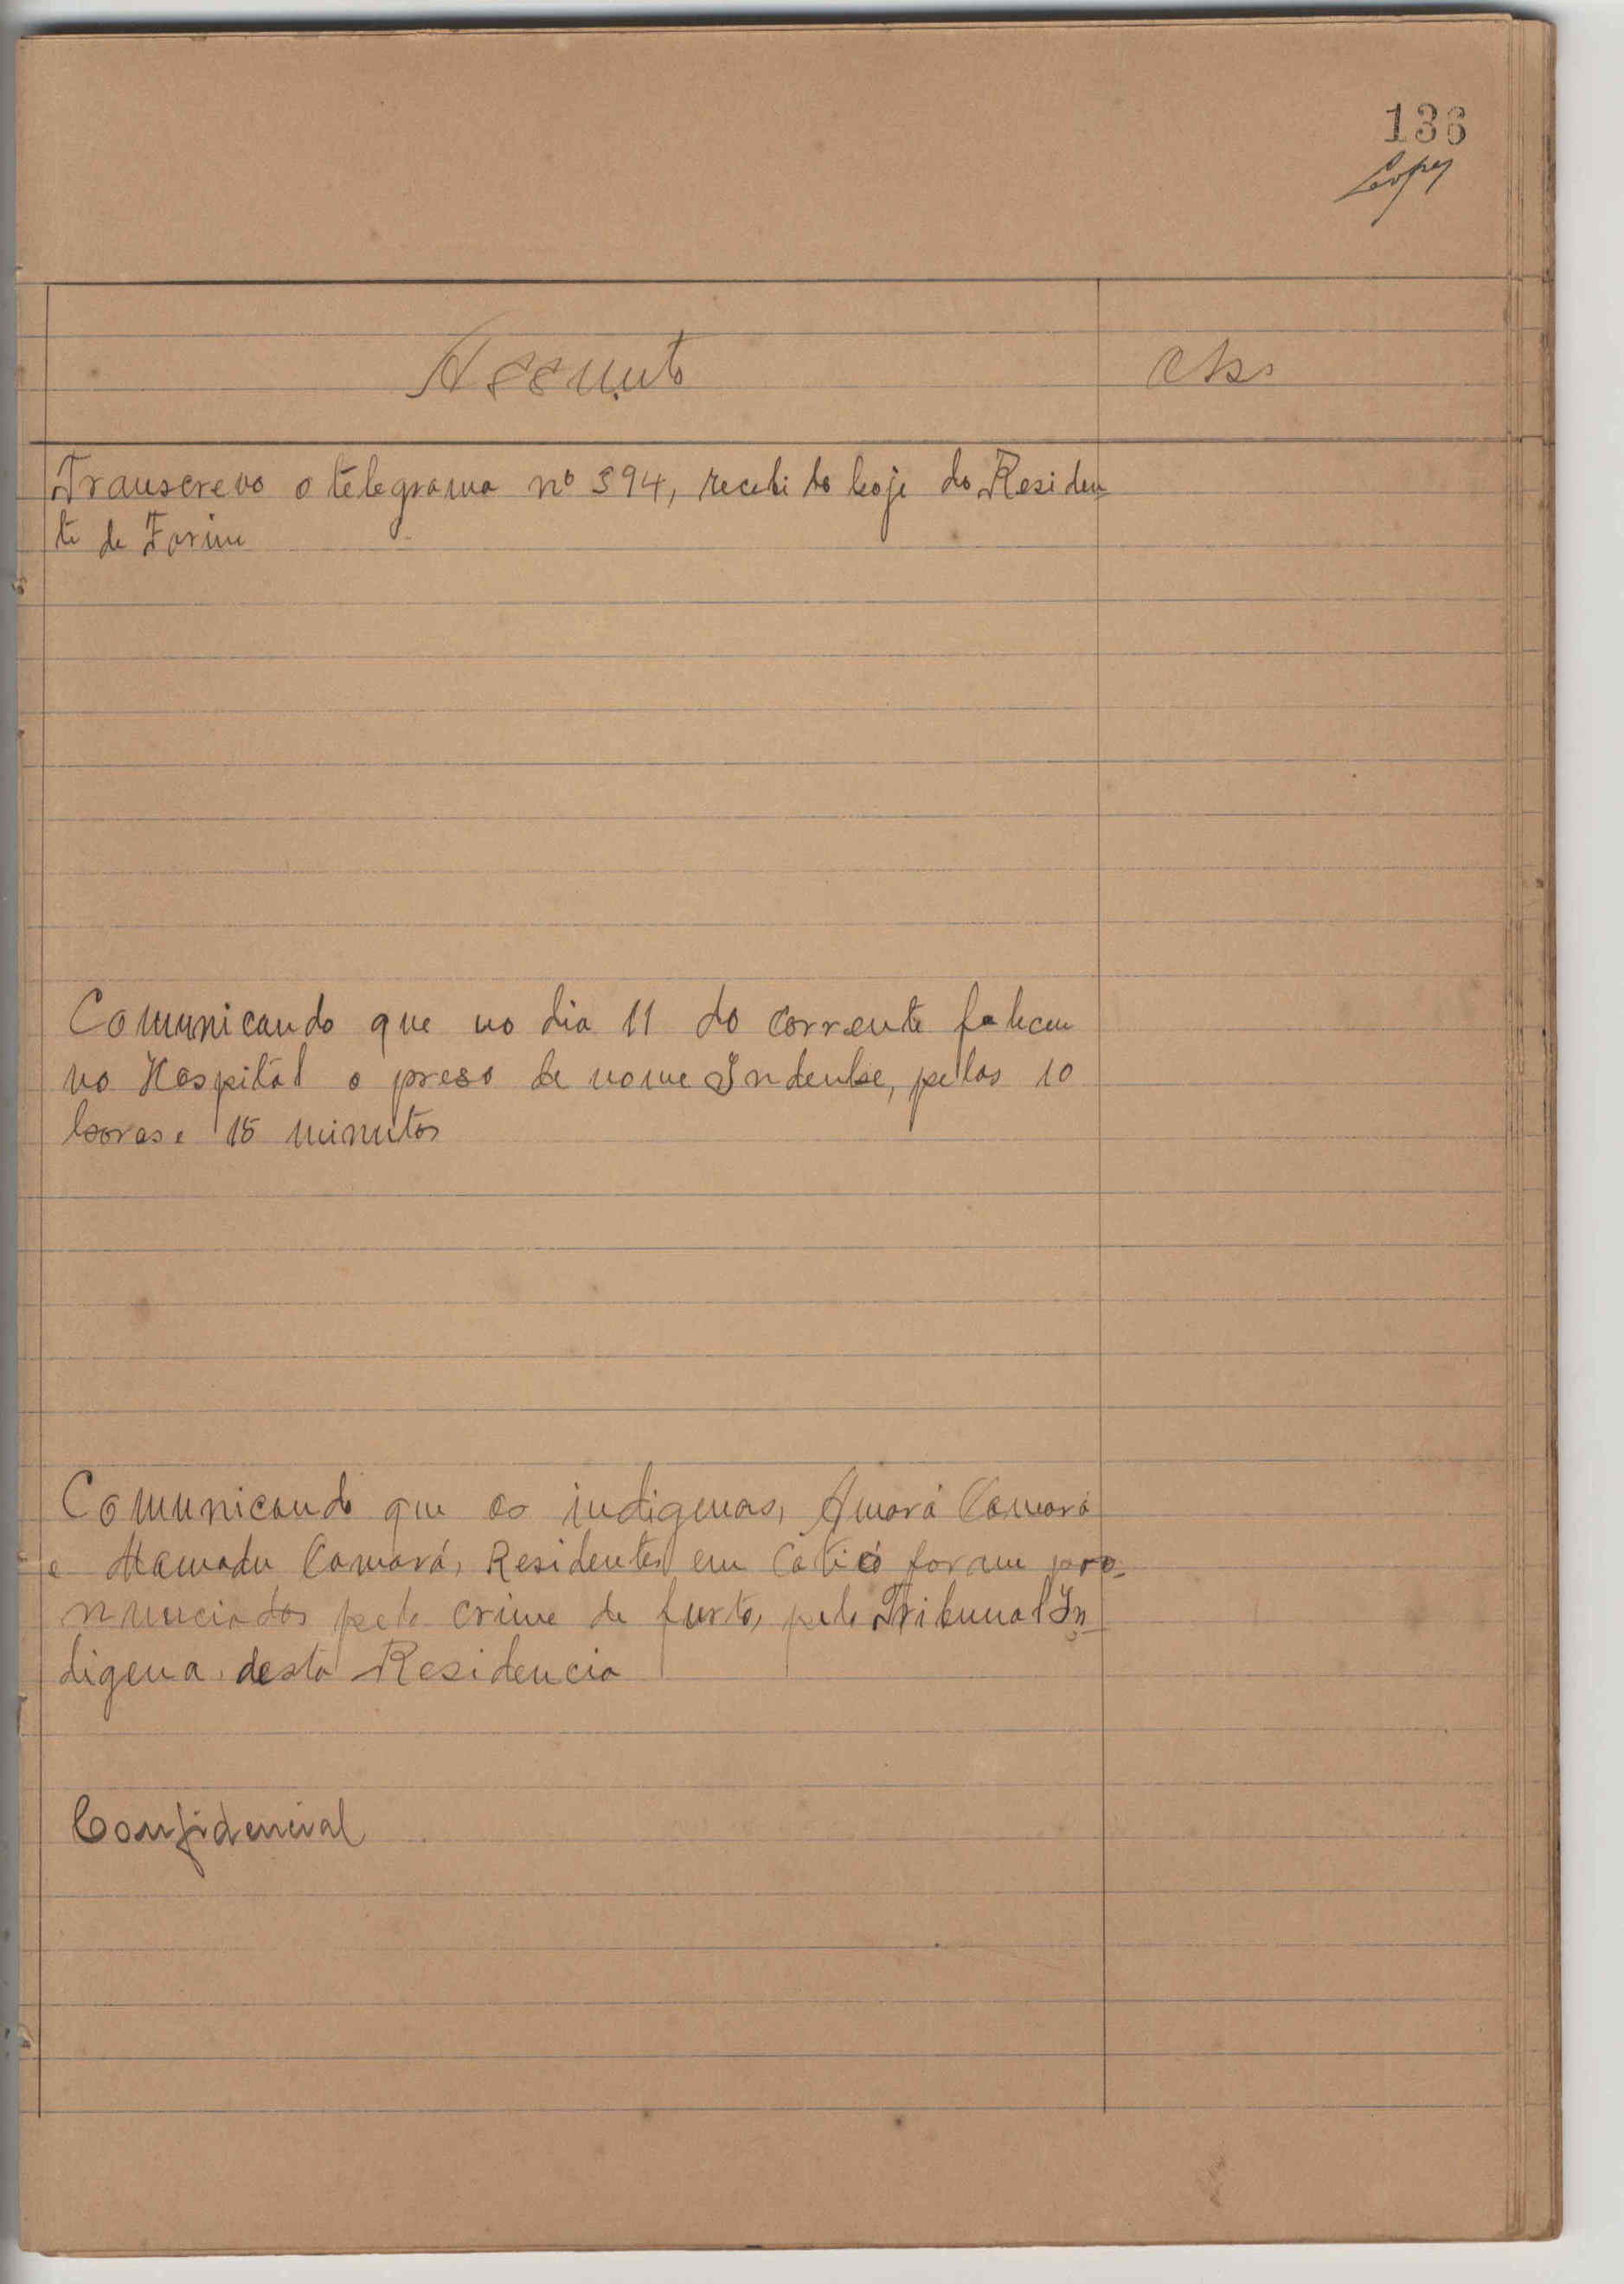 136
Lopes
Assunto
Obs
Transcrevo o telegrama nº 394, recebido hoje do Residen
te de Farim
Comunicando que no dia 11 do corrente faleceu
no Hospital o preso de nome Indenbe, pelas 10
horas e 15 minutos
Comunicando que os indigenas, Amará Camará
e Mamadu Camará, Residentes em Catió foram pro-
nunciados pelo crime de furto, pelo Tribunal In
digena desta Residencia
Confidencial